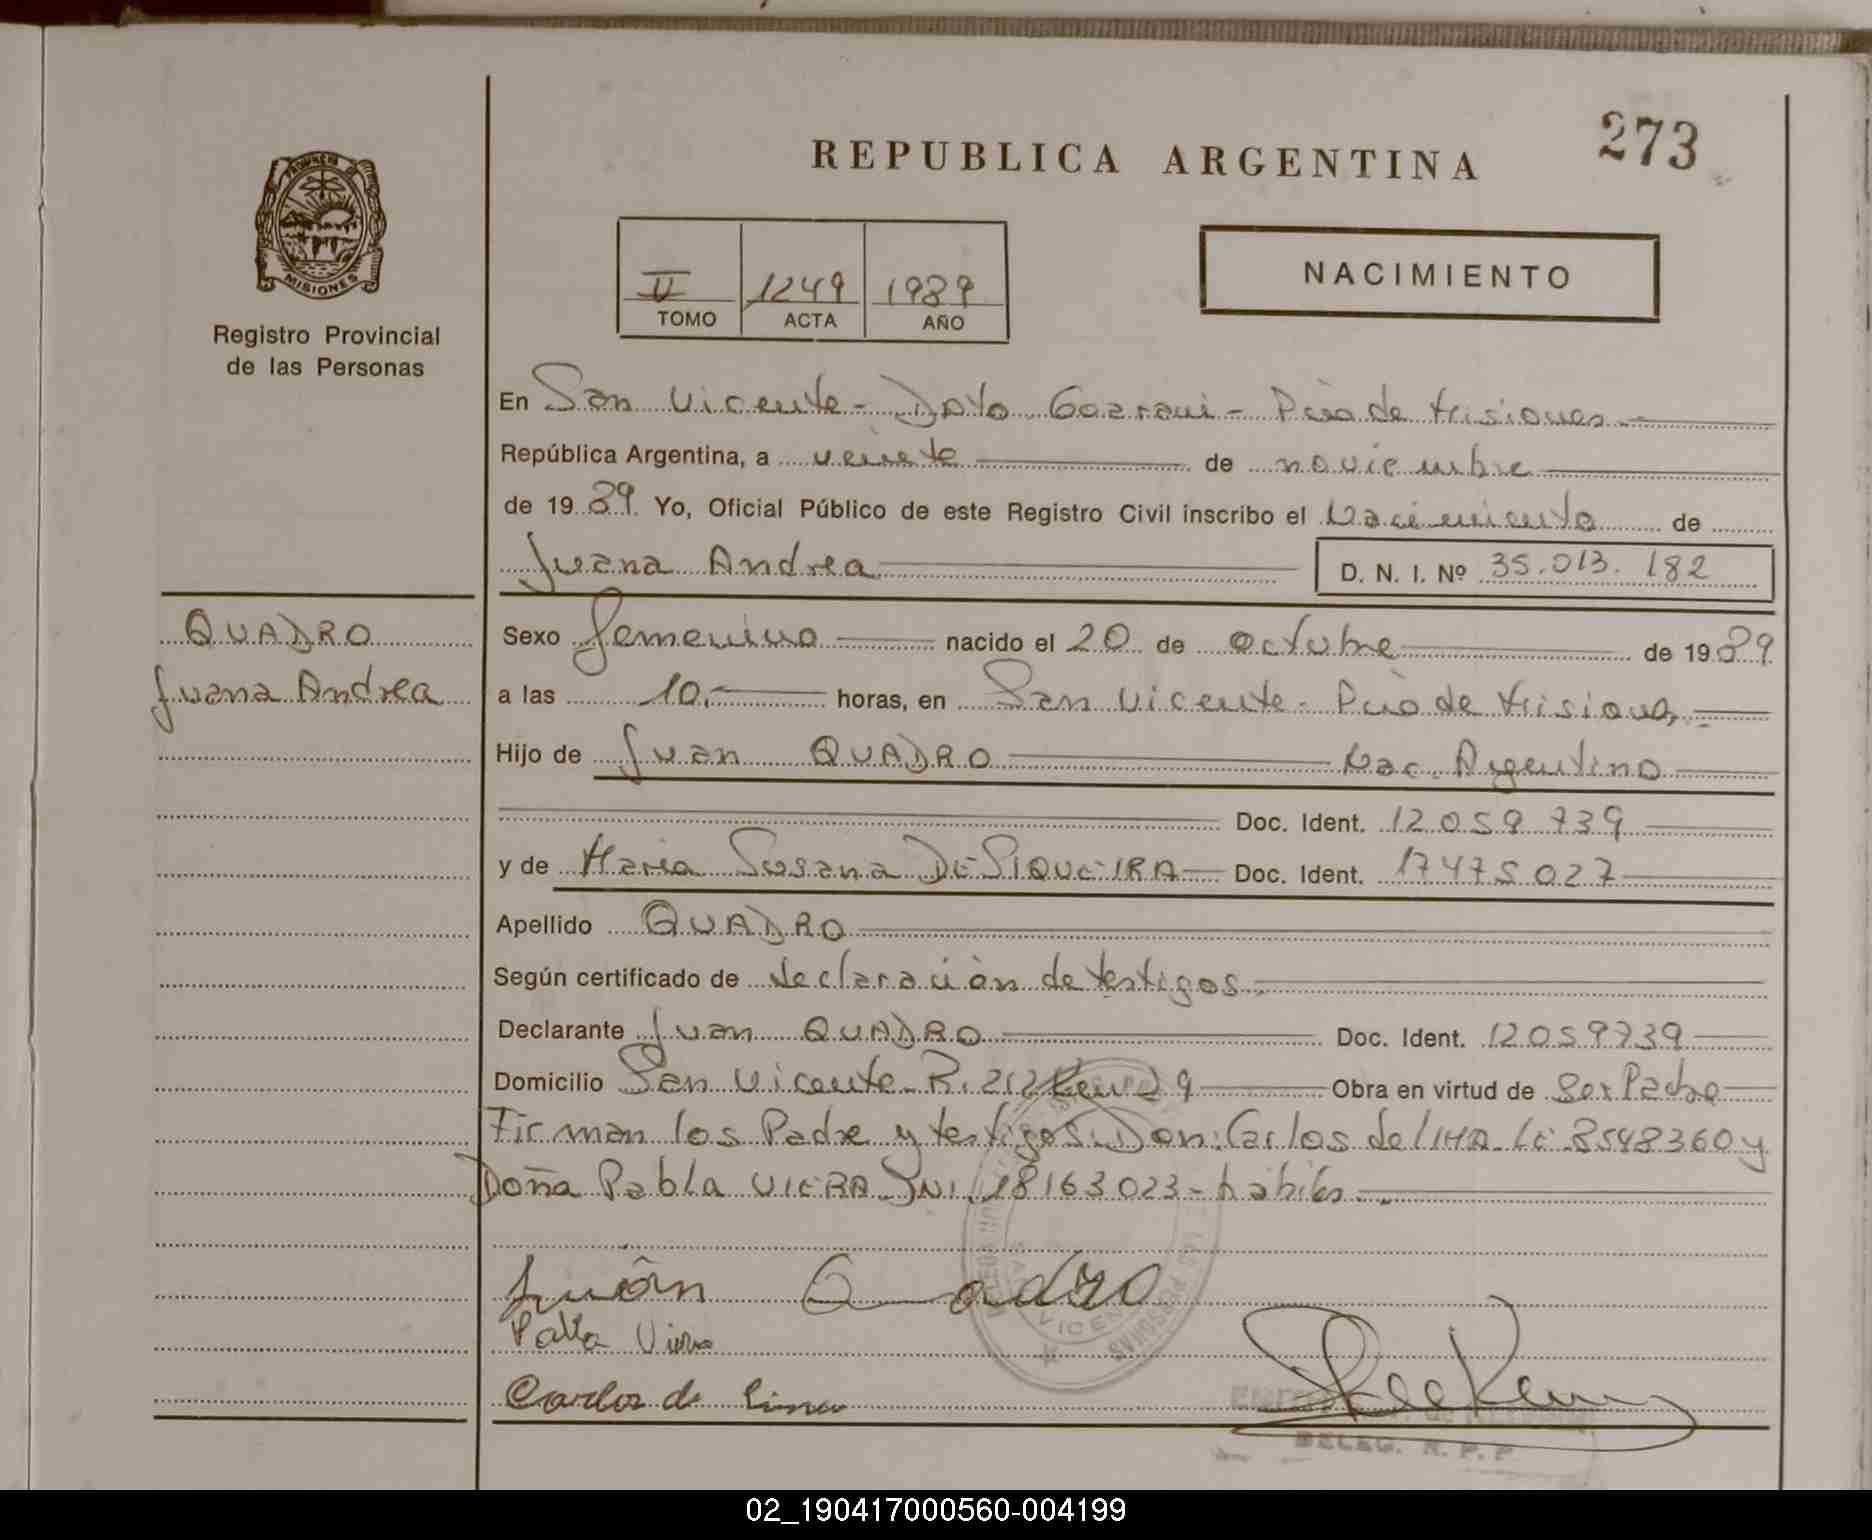 273
REPUBLICA ARGENTINA
PROVINCIA
MISIONES
Registro Provincial
de las Personas
II 1249 1989
TOMO ACTA AÑO
NACIMIENTO
En San Vicente - Dpto Guaraní - Pcia de Misiones
República Argentina, a veinte de noviembre
de 1989 Yo, Oficial Público de este Registro Civil inscribo el Nacimiento de
Juana Andrea D. N. I. Nº 35.013.182
QUADRO
Juana Andrea
Sexo femenino nacido el 20 de octubre de 1989
a las 10.- horas, en San Vicente - Pcia de Misiones
Hijo de Juan QUADRO Nac. Argentino
Doc. Ident. 12059739
y de Maria Susana DE SIQUEIRA Doc. Ident. 17475027
Apellido QUADRO
Según certificado de declaración de testigos.
Declarante Juan QUADRO Doc. Ident. 12059739
Domicilio San Vicente - R. 212 Km 29 Obra en virtud de Ser Padre
Firman los Padre y testigos. Don: Carlos de LIMA LE 8548360 y
Doña Pabla VIERA DNI. 18163023 - hábiles.
Juan Quadro
Pabla Viera
Carlos de Lima
DELEG. R. P. P
02_190417000560-004199